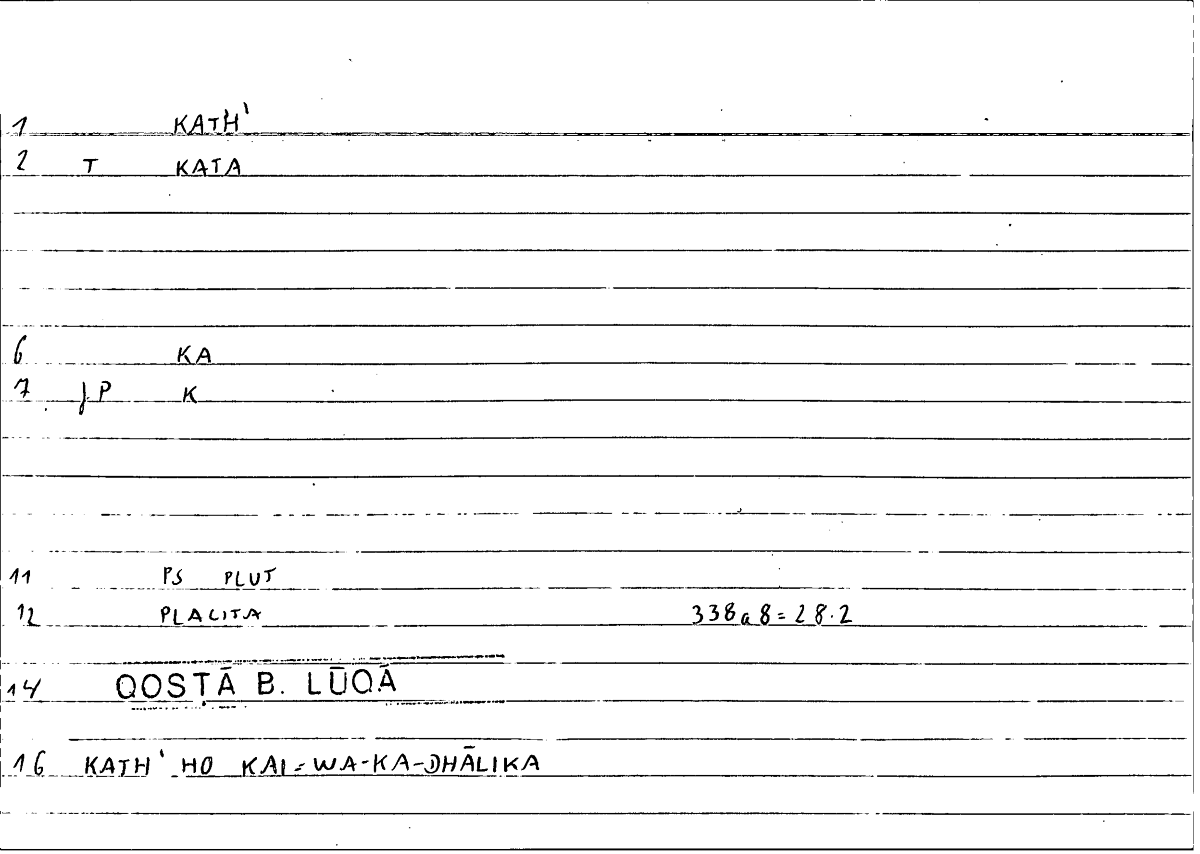 1 KATH'
2 T KATA
6 KA
7 JP K
11 PS PLUT
12 PLACITA 338a8=28.2
14 QOSṬĀ B. LŪQĀ
16 KATH' HO KAI=WA-KA-DHĀLIKA